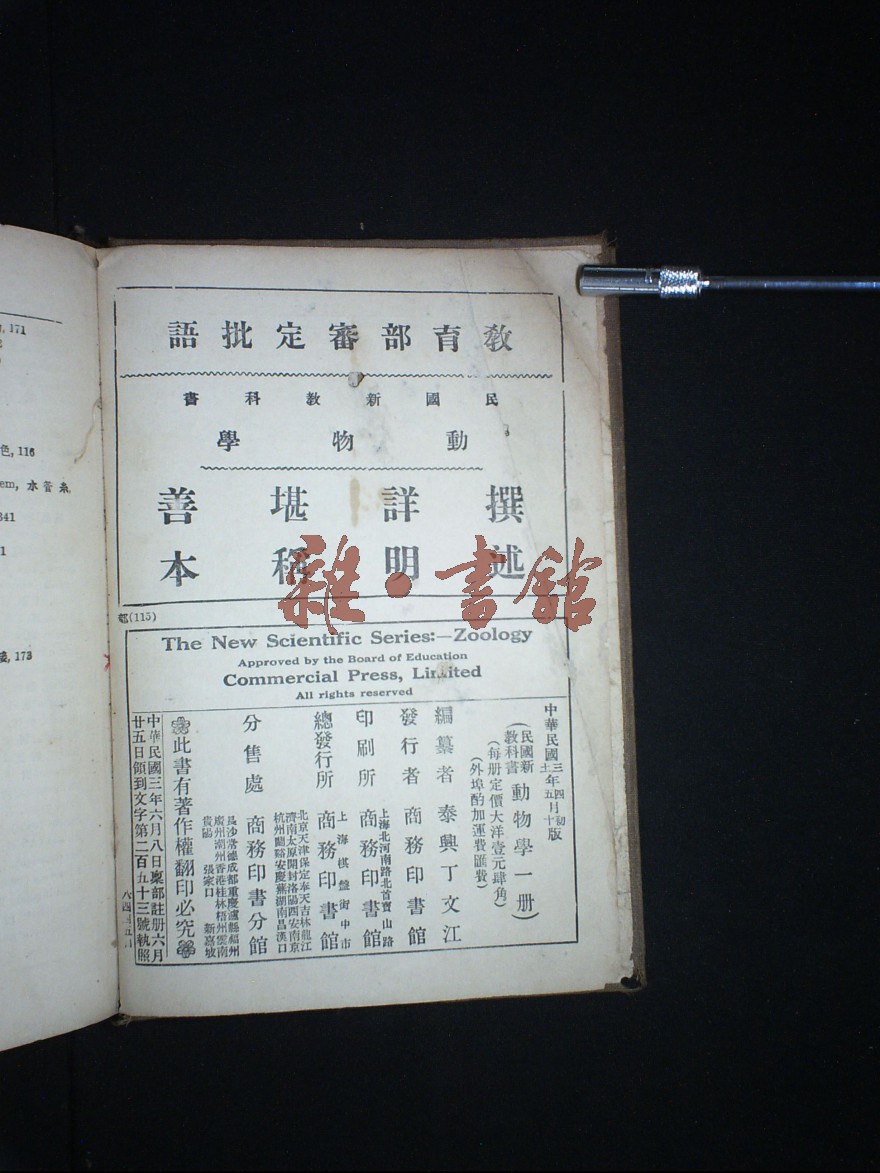 教育部審定批語
民國新教科書
動物學
撰述詳明堪稱善本
(115)
The New Scientific Series:—Zoology
Approved by the Board of Education
Commercial Press, Limited
All rights reserved
中華民國三年四月初版
(民國新教科書動物學一册)
(每册定價大洋壹元肆角)
(外埠酌加運費匯費)
編纂者 泰興丁文江
發行者 商務印書館
上海北河南路北首寶山路
印刷所 商務印書館
上海棋盤街中市
總發行所 商務印書館
北京天津保定奉天吉林龍江
濟南太原開封洛陽西安南京
杭州蘭谿安慶蕪湖南昌漢口
分售處 商務印書分館
長沙常德成都重慶瀘縣福州
廣州潮州香港桂林梧州雲南
貴陽 張家口 新嘉坡
此書有著作權翻印必究
中華民國三年六月八日稟部註册六月
廿五日領到文字第二百五十三號執照
171
色, 116
em, 水管系
341
1
173
雜·書館